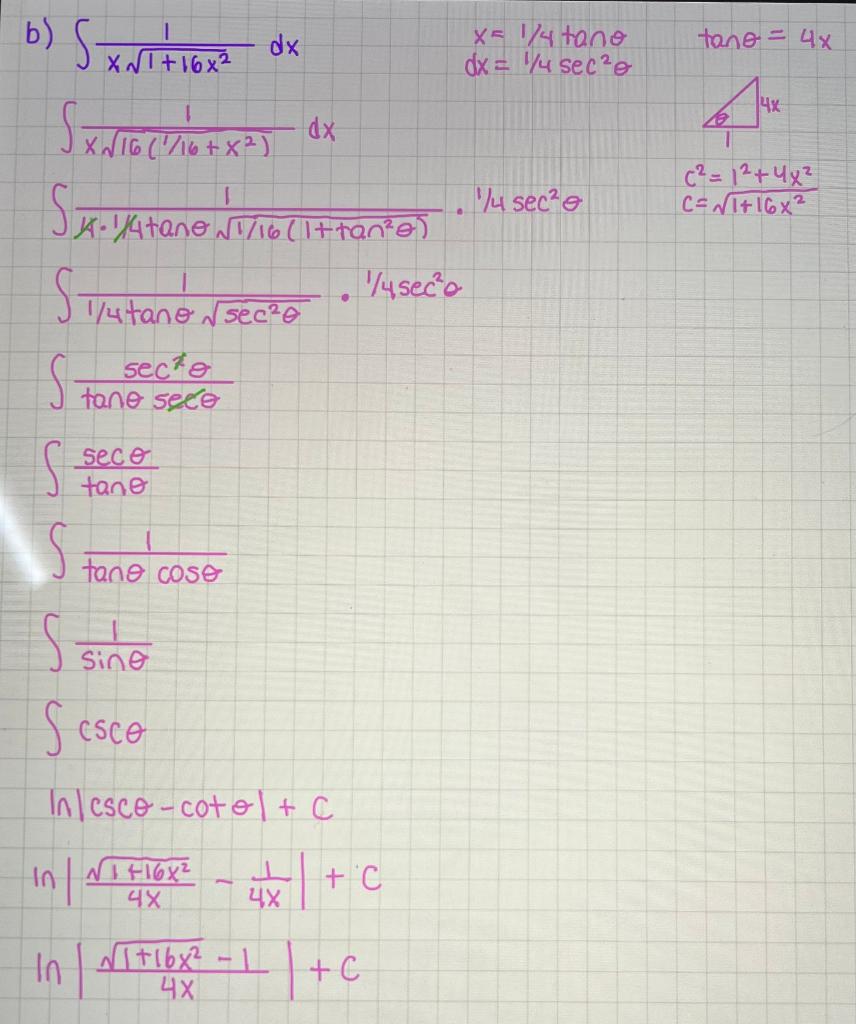 b) ∫ 1/(x√(1+16x²)) dx
x = 1/4 tanθ
dx = 1/4 sec²θ
tanθ = 4x
4x
θ
1
c² = 1² + 4x²
c = √(1+16x²)
∫ 1/(x√(16(1/16 + x²))) dx
∫ 1/(4·1/4 tanθ √(1/16(1+tan²θ))) · 1/4 sec²θ
∫ 1/(1/4 tanθ √(sec²θ)) · 1/4 sec²θ
∫ sec²θ/(tanθ secθ)
∫ secθ/tanθ
∫ 1/(tanθ cosθ)
∫ 1/sinθ
∫ cscθ
ln|cscθ - cotθ| + C
ln|√(1+16x²)/4x - 1/4x| + C
ln|(√(1+16x²) - 1)/4x| + C